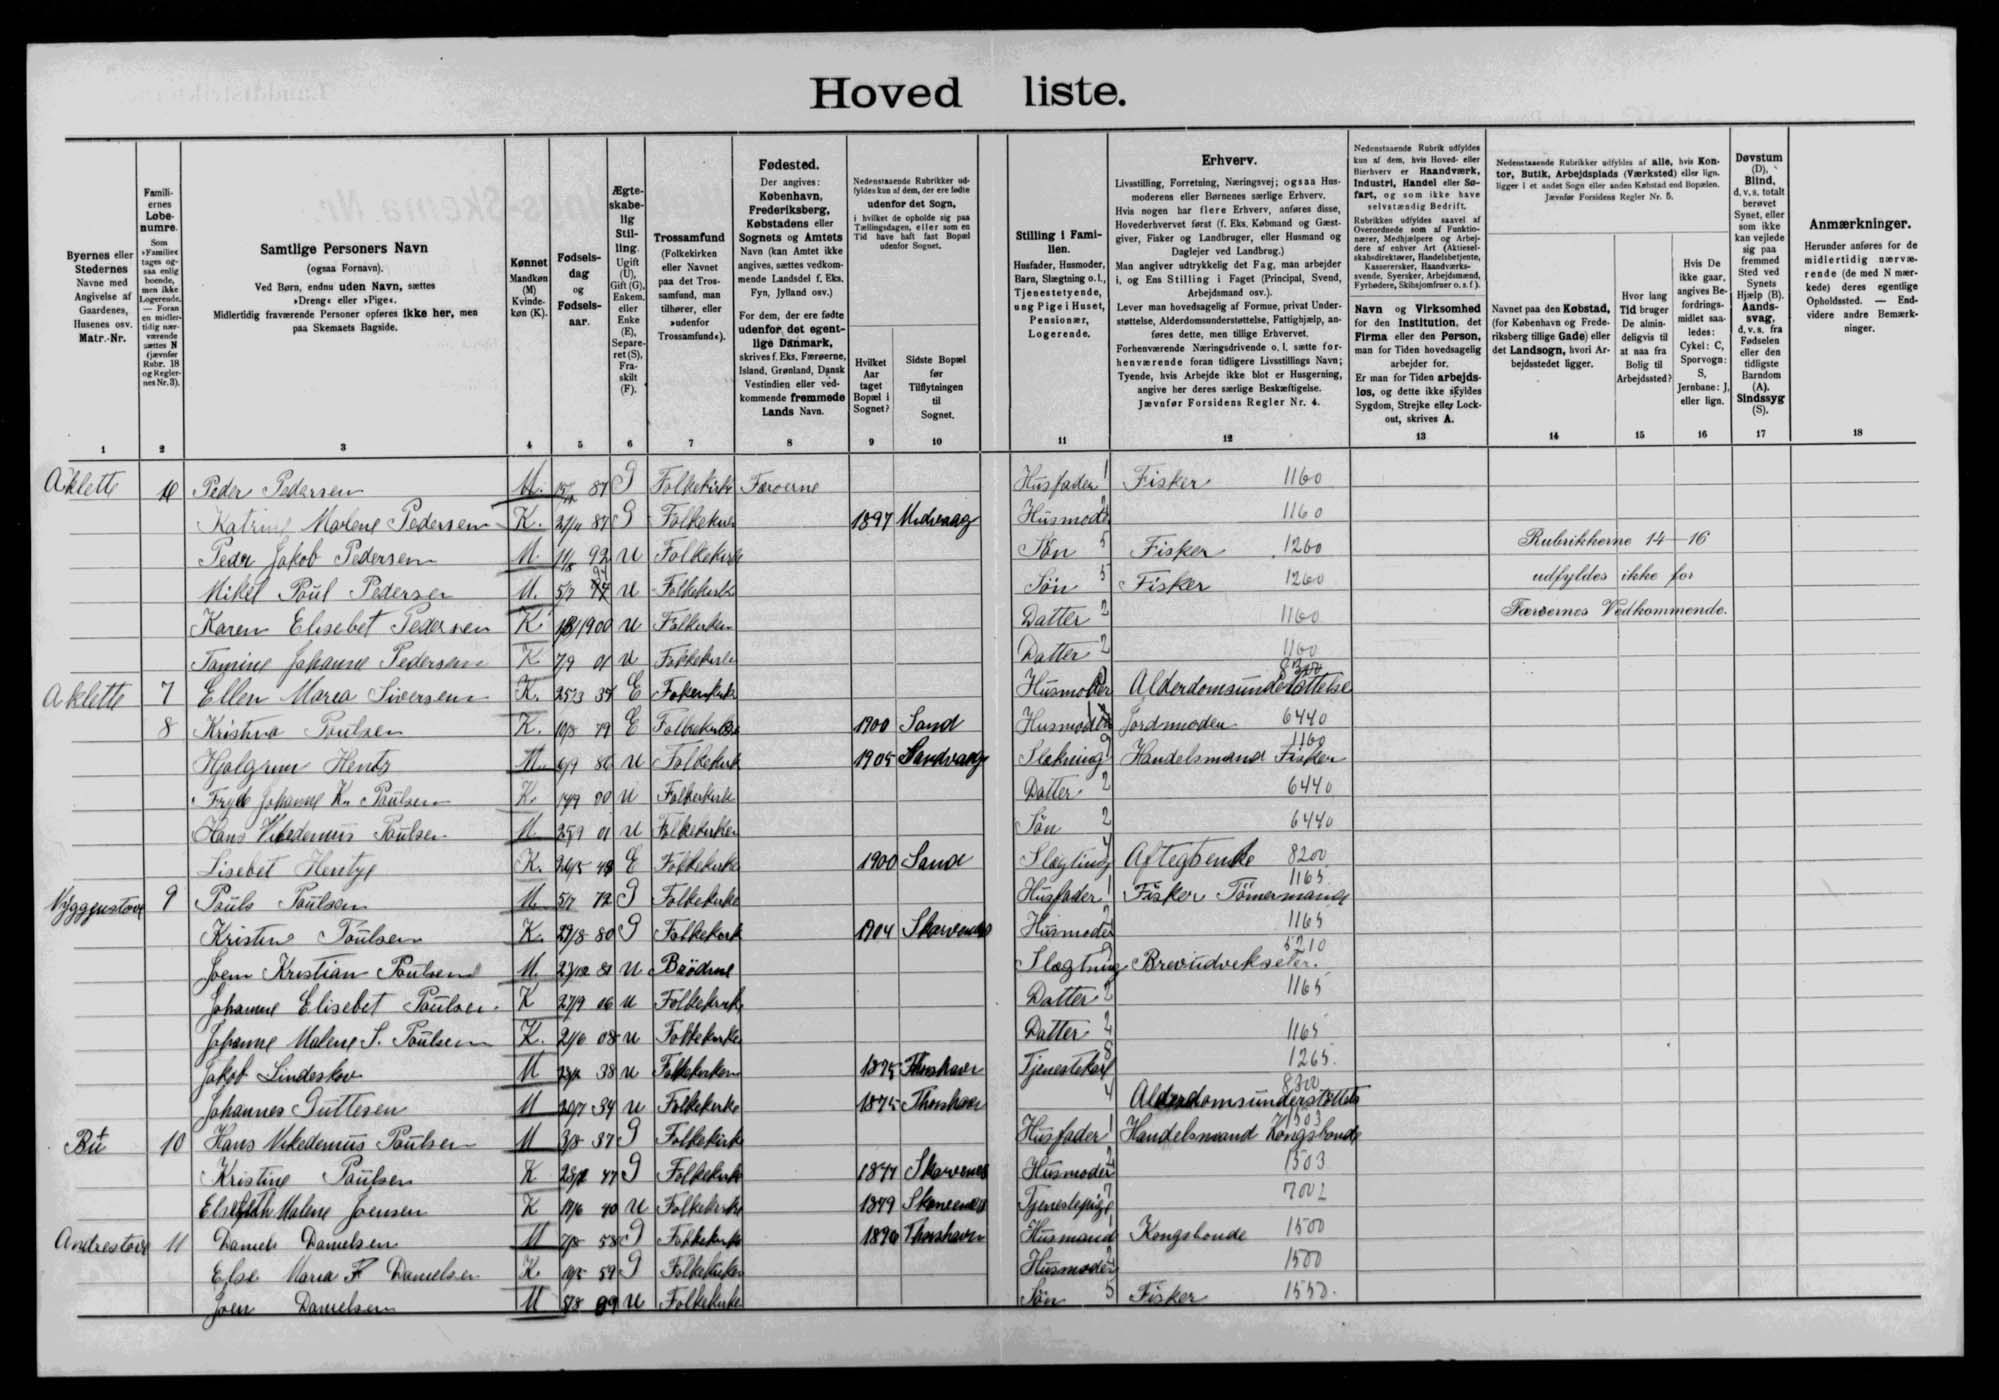 Hoved liste.
Byernes eller Stedernes Navne med Angivelse af Gaardenes, Husenes osv. Matr.-Nr.
Familiernes Løbenumre.
Som »Familie« tages ogsaa enlig boende, men ikke Logerende. — Foran en midlertidig nærværende sættes N (jævnfør Rubr. 18 og Reglernes Nr. 3).
Samtlige Personers Navn
(ogsaa Fornavn).
Ved Børn, endnu uden Navn, sættes
»Dreng« eller »Pige«.
Midlertidig fraværende Personer opføres ikke her, men
paa Skemaets Bagside.
Kønnet
Mandkøn (M) Kvindekøn (K).
Fødselsdag og Fødselsaar.
Ægteskabelig Stilling.
Ugift (U), Gift (G), Enkem. eller Enke (E), Separeret (S), Fraskilt (F).
Trossamfund
(Folkekirken eller Navnet paa det Trossamfund, man tilhører, eller »udenfor Trossamfund«).
Fødested.
Der angives: København, Frederiksberg, Købstadens eller Sognets og Amtets Navn (kan Amtet ikke angives, sættes vedkommende Landsdel f. Eks. Fyn, Jylland osv.)
For dem, der ere fødte udenfor det egentlige Danmark, skrives f. Eks. Færøerne, Island, Grønland, Dansk Vestindien eller vedkommende fremmede Lands Navn.
Nedenstaaende Rubrikker udfyldes kun af dem, der ere fødte udenfor det Sogn, i hvilket de opholde sig paa Tællingsdagen, eller som en Tid have haft fast Bopæl udenfor Sognet.
Hvilket Aar taget Bopæl i Sognet?
Sidste Bopæl før Tilflytningen til Sognet.
Stilling i Familien.
Husfader, Husmoder, Barn, Slægtning o.l., Tjenestetyende, ung Pige i Huset, Pensionær, Logerende.
Erhverv.
Livsstilling, Forretning, Næringsvej; ogsaa Husmoderens eller Børnenes særlige Erhverv.
Hvis nogen har flere Erhverv, anføres disse, Hovederhvervet først (f. Eks. Købmand og Gæstgiver, Fisker og Landbruger, eller Husmand og Daglejer ved Landbrug).
Man angiver udtrykkelig det Fag, man arbejder i, og Ens Stilling i Faget (Principal, Svend, Arbejdsmand osv.).
Lever man hovedsagelig af Formue, privat Understøttelse, Alderdomsunderstøttelse, Fattighjælp, anføres dette, men tillige Erhvervet.
Forhenværende Næringsdrivende o. l. sætte forhenværende foran tidligere Livsstillings Navn; Tyende, hvis Arbejde ikke blot er Husgerning, angive her deres særlige Beskæftigelse.
Jævnfør Forsidens Regler Nr. 4.
Nedenstaaende Rubrik udfyldes kun af dem, hvis Hoved- eller Bierhverv er Haandværk, Industri, Handel eller Søfart, og som ikke have selvstændig Bedrift.
Rubrikken udfyldes saavel af Overordnede som af Funktionærer, Medhjælpere og Arbejdere af enhver Art (Aktieselskabsdirektører, Handelsbetjente, Kasserersker, Haandværkssvende, Syersker, Arbejdsmænd, Fyrbødere, Skibsjomfruer o. s. f.).
Navn og Virksomhed for den Institution, det Firma eller den Person, man for Tiden hovedsagelig arbejder for.
Er man for Tiden arbejdsløs, og dette ikke skyldes Sygdom, Strejke eller Lockout, skrives A.
Nedenstaaende Rubrikker udfyldes af alle, hvis Kontor, Butik, Arbejdsplads (Værksted) eller lign. ligger i et andet Sogn eller anden Købstad end Bopælen.
Jævnfør Forsidens Regler Nr. 5.
Navnet paa den Købstad, (for København og Frederiksberg tillige Gade) eller det Landsogn, hvori Arbejdsstedet ligger.
Hvor lang Tid bruger De almindeligvis til at naa fra Bolig til Arbejdssted?
Hvis De ikke gaar, angives Befordringsmidlet saaledes: Cykel: C, Sporvogn: S, Jernbane: J, eller lign.
Døvstum (D), Blind, d. v. s. totalt berøvet Synet, eller som ikke kan vejlede sig paa fremmed Sted ved Synets Hjælp (B). Aandssvag, d. v. s. fra Fødselen eller den tidligste Barndom (A). Sindssyg (S).
Anmærkninger.
Herunder anføres for de midlertidig nærværende (de med N mærkede) deres egentlige Opholdssted. — Endvidere andre Bemærkninger.
1 2 3 4 5 6 7 8 9 10 11 12 13 14 15 16 17 18
Aklette Peder Pedersen M. 87 G Folkekirke Færøerne Husfader 1 Fisker 1160
Katrine Malene Pedersen K. 21/11 87 G Folkekirke 1897 Midvaag Husmoder 2 1160
Peder Jakob Pedersen M. 92 U Folkekirke Søn 5 Fisker 1260 Rubrikkerne 14-16
Mikel Poul Pedersen M. 5/7 U Folkekirke Søn 5 Fisker 1260 udfyldes ikke for
Karen Elisebet Pedersen K. 1900 U Folkekirken Datter 2 1160 Færøernes Vedkommende.
Tomine Johanne Pedersen K 7/9 01 U Folkekirke Datter 2 1160
Aklette 7 Ellen Maria Siversen K. 25/3 E Folkekirke Husmoder Alderdomsunderstøttelse
8 Kristina Poulsen K. 10/8 79 E Folkekirken 1900 Sand Husmoder Jordmoder 6440
Hjalgrim Hentz M. 6/9 86 U Folkekirke 1905 Sandvaag Slektning 9 Handelsmand Fisker 1160
Johanne K. Poulsen K. 14/9 00 U Folkekirke Datter 2 6440
Hans Vikedemus Poulsen M. 25/9 01 U Folkekirken Søn 2 6440
Lisebet Hentze K. 26/5 48 E Folkekirke 1900 Sand Slægtning 4 8200
9 Pouls Poulsen M. 5/7 72 G Folkekirke Husfader 1 Fisker Tömermand 1165
Kristin Poulsen K. 29/8 80 G Folkekirke 1904 Husmoder 2 1165
Joen Kristian Poulsen M. 81 U Brödrene Slægtning 9 5210
Johanne Elisebet Poulsen K 27/9 06 U Folkekirke Datter 2 1165
Johanne Malene S. Poulsen K. 21/6 08 U Folkekirke Datter 2 1165
Jakob Lindeskov M 38 U Folkekirken 1875 Thorshavn Tjenestekarl 8 1265.
Johannes Guttesen M 20/7 34 U Folkekirke 1875 Thorshavn 4 Alderdomsunderstøttelse 8300
10 Hans Vikedemus Poulsen M 3/8 37 G Folkekirke Husfader 1 Handelsmand Kongsbonde 1503
Kristine Poulsen K 47 G Folkekirke 1871 Husmoder 2 1503
Malene Joensen K 40 U Folkekirke 1879 Tjenestepige 7 7002
Andrestove 11 Daniel Danielsen M 7/8 58 G Folkekirke Thorshavn Husmand 1 Kongsbonde 1500
Else Maria F Danielsen K. 10/5 59 G Folkekirken Husmoder 2 1500
Joen Danielsen M 5/8 89 U Folkekirke Søn 5 Fisker 1550.